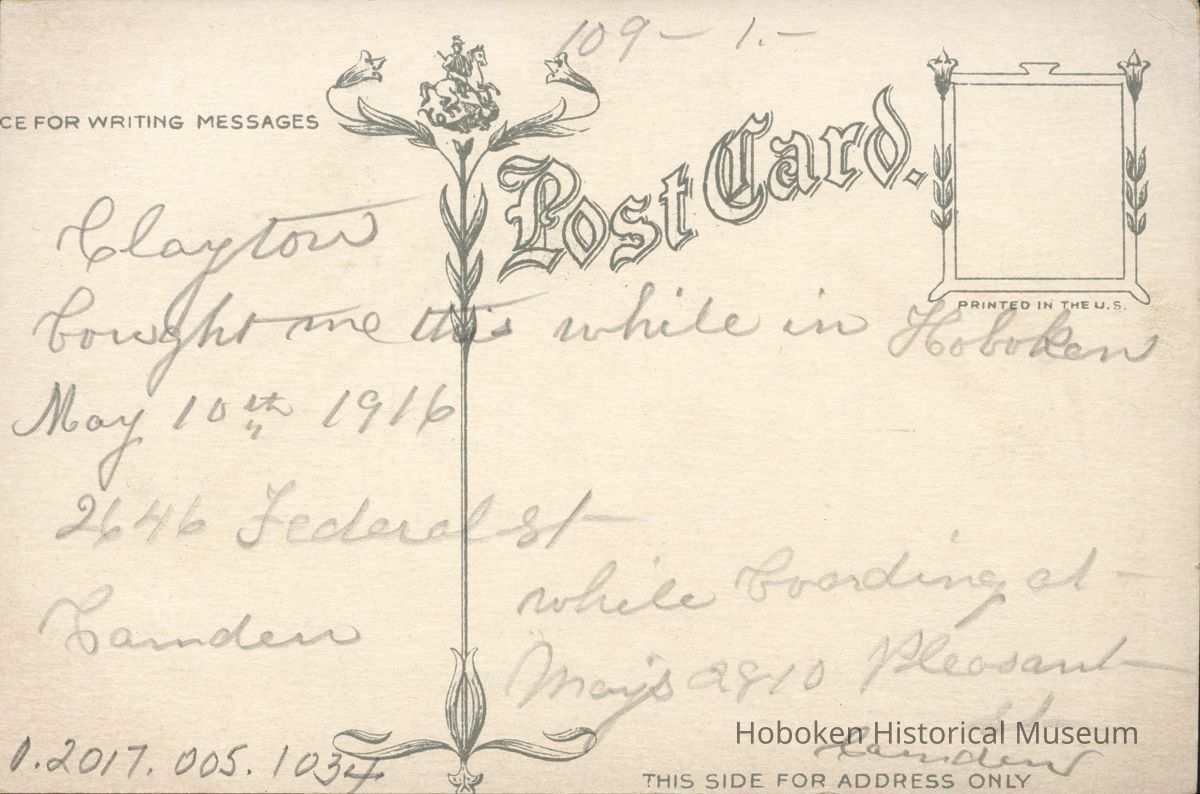 109 - 1.-
CE FOR WRITING MESSAGES
Post Card.
PRINTED IN THE U.S.
Clayton
bought me this while in Hoboken
May 10th 1916
2646 Federal St
Camden
while boarding at
May's 2910 Pleasant
St
Camden
Hoboken Historical Museum
0.2017.005.1034
THIS SIDE FOR ADDRESS ONLY